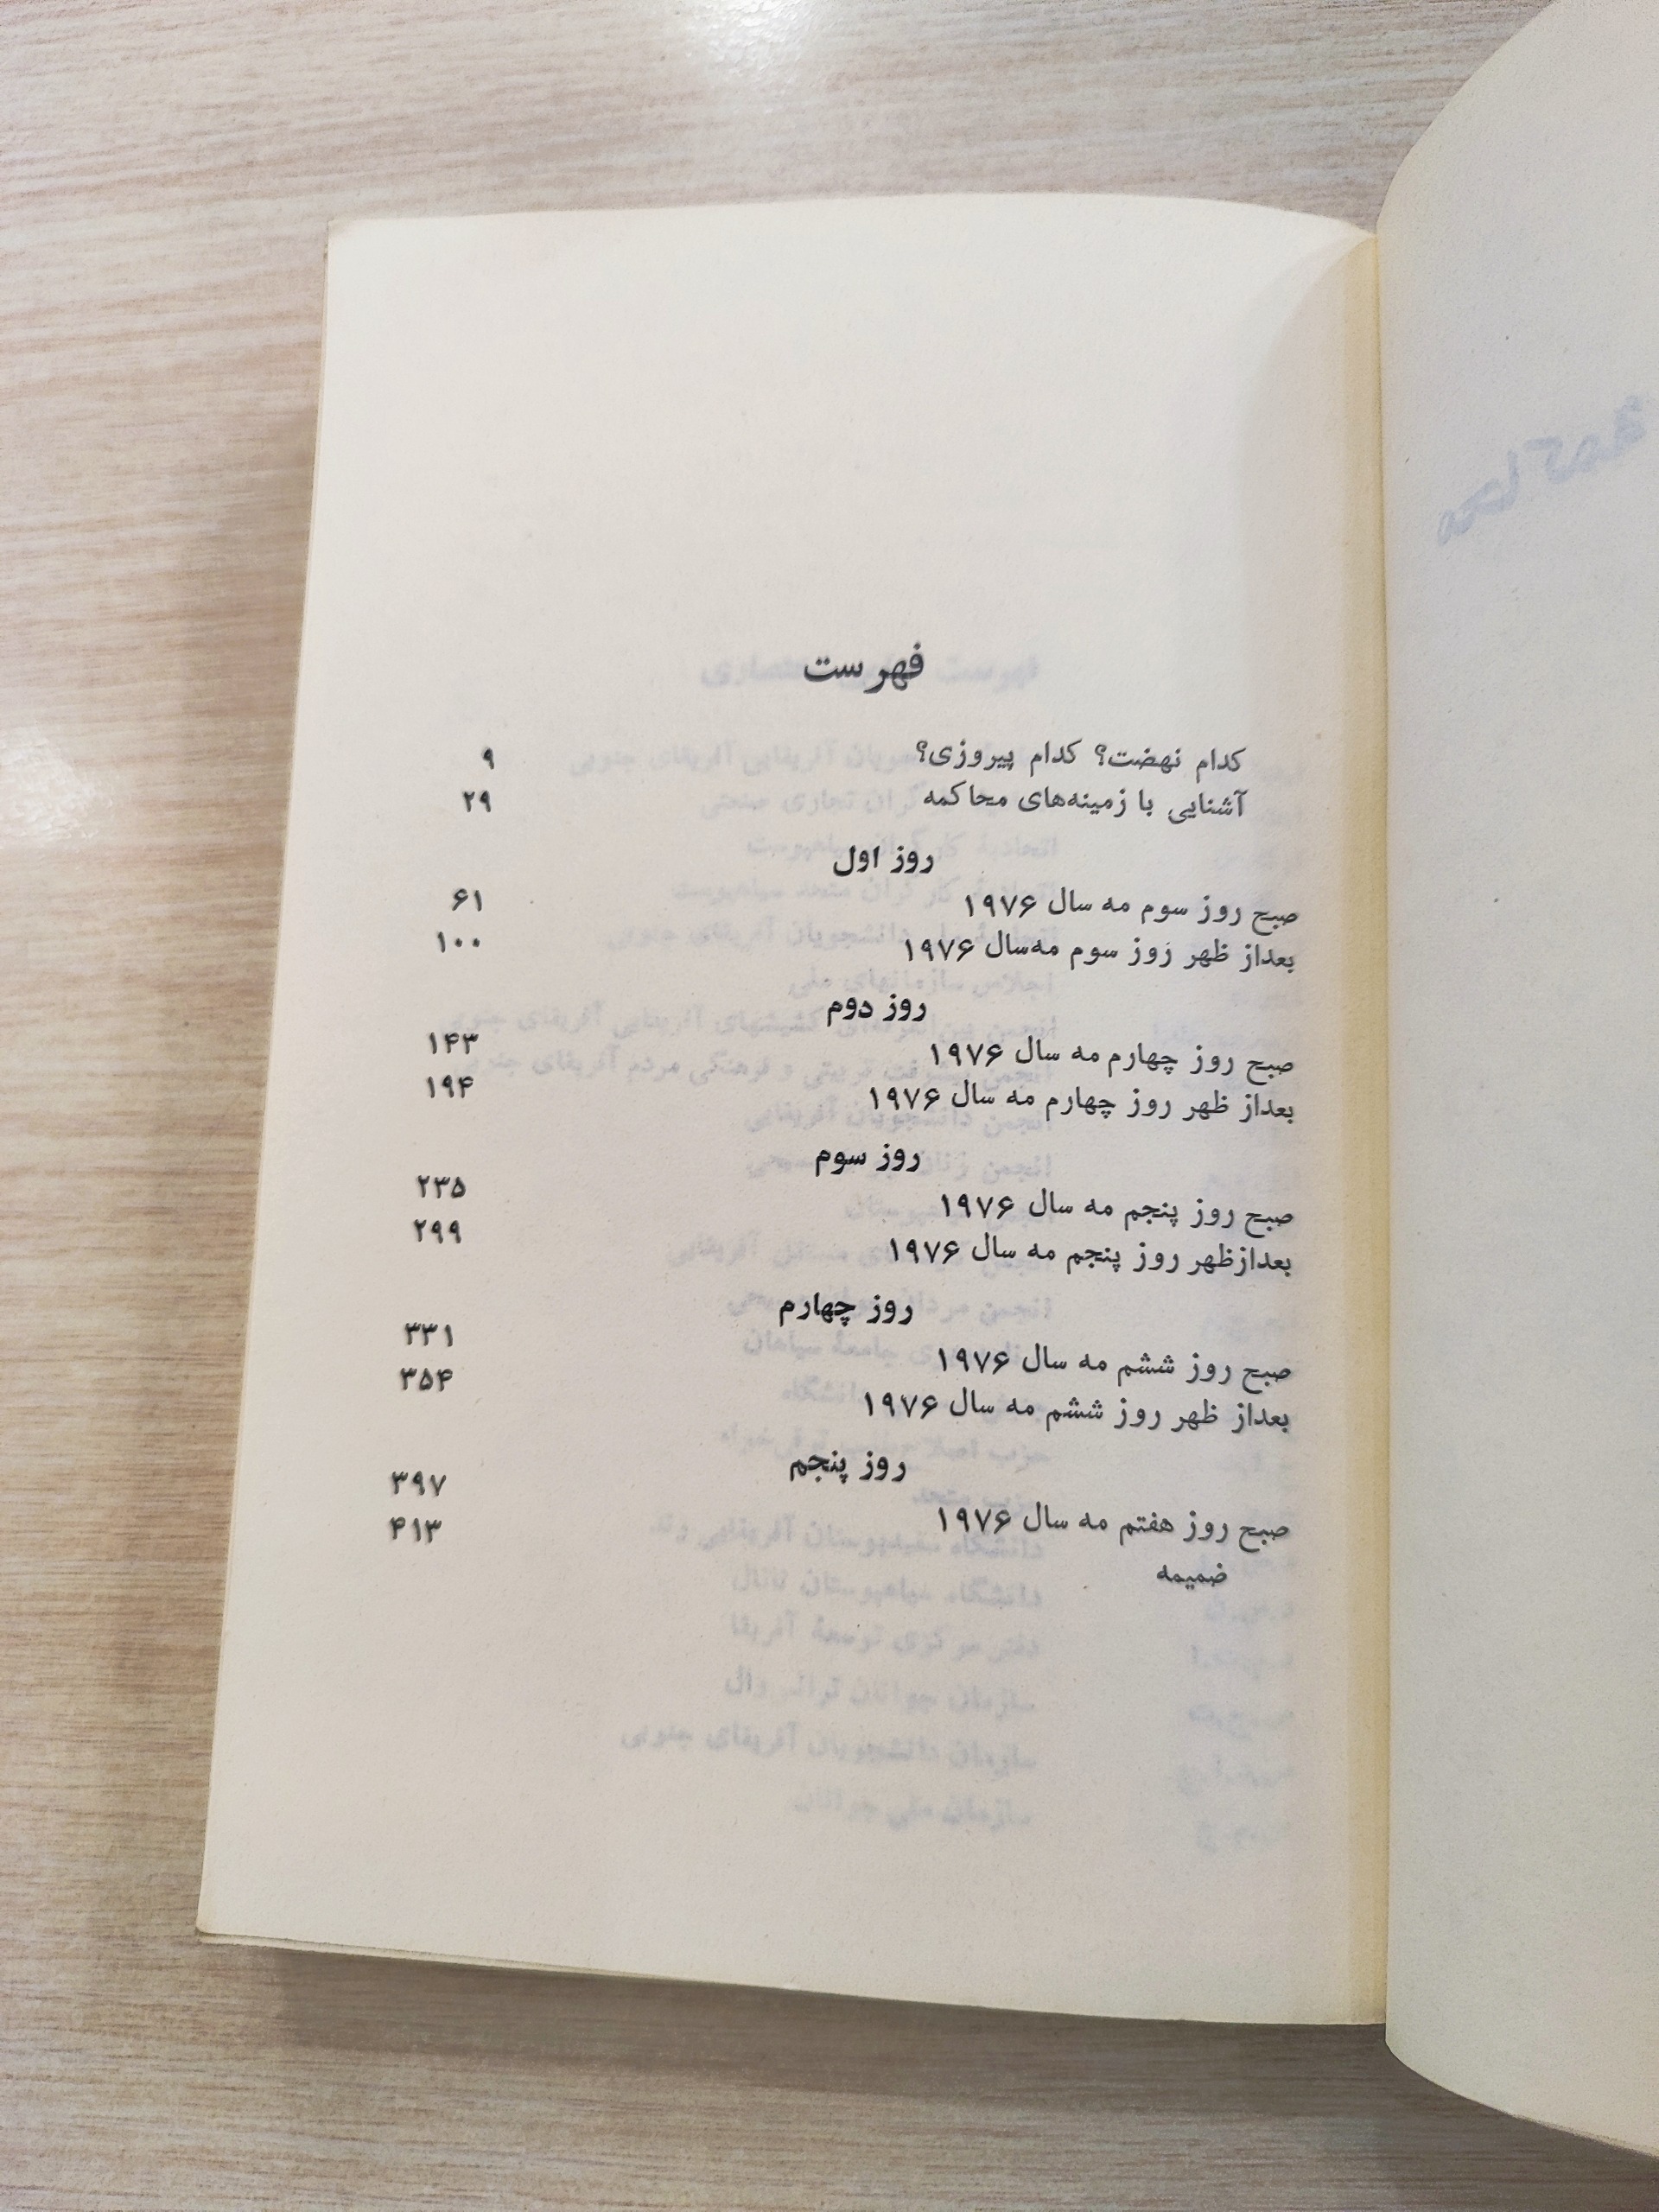 فهرست
کدام نهضت؟ کدام پیروزی؟ ۹
آشنایی با زمینه‌های محاکمه ۲۹
روز اول
صبح روز سوم مه سال ۱۹۷۶ ۶۱
بعداز ظهر روز سوم مه‌سال ۱۹۷۶ ۱۰۰
روز دوم
صبح روز چهارم مه سال ۱۹۷۶ ۱۴۳
بعداز ظهر روز چهارم مه سال ۱۹۷۶ ۱۹۴
روز سوم
صبح روز پنجم مه سال ۱۹۷۶ ۲۳۵
بعدازظهر روز پنجم مه سال ۱۹۷۶ ۲۹۹
روز چهارم
صبح روز ششم مه سال ۱۹۷۶ ۳۳۱
بعداز ظهر روز ششم مه سال ۱۹۷۶ ۳۵۴
روز پنجم
صبح روز هفتم مه سال ۱۹۷۶ ۳۹۷
ضمیمه ۴۱۳